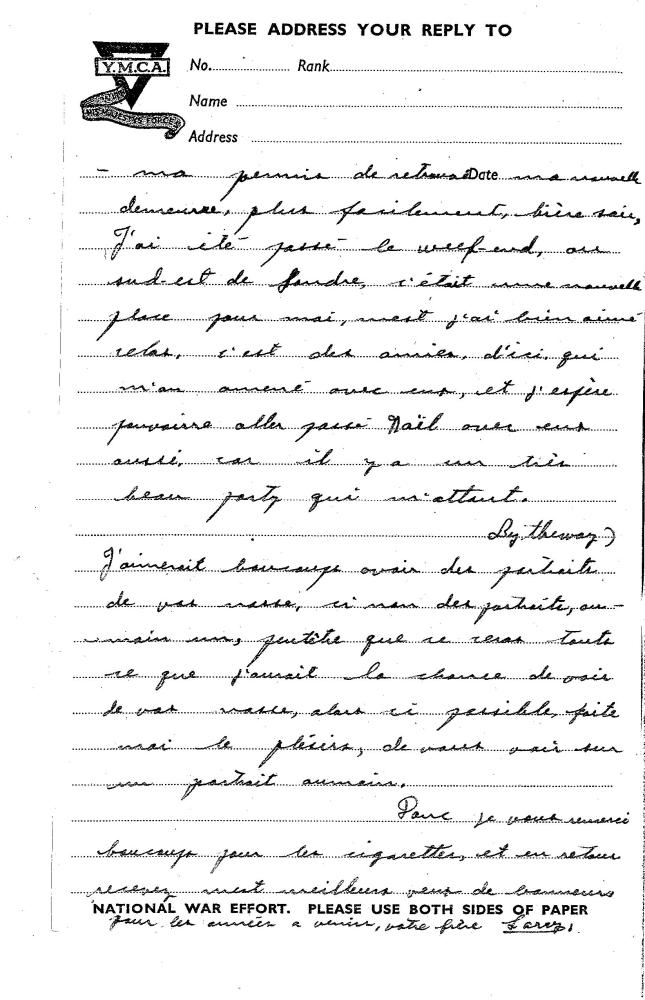 PLEASE ADDRESS YOUR REPLY TO
Y.M.C.A.
HIS MAJESTY'S FORCES
No. Rank
Name
Address
Date
- ma permis de retrouvé ma nouvelle
demeurre, plus facilement, bière saie,
J'ai été passé le weef-end, au
sud-est de Londre, c'était une nouvelle
place pour moi, mest j'ai bien aimé
celas, c'est des amies, d'ici, qui
m'on amené avec eux, et j'espère
pouvoirre aller passé Noël avec eux
aussi, car il y a un très
beau party qui m'attant.
By theway)
J'aimerait baucoups avoir des portraits
de vos nosse, ci non des portraits, au-
moin un, peutêtre que ce seras touts
ce que j'aurait la chance de voir
de vos nosse, alors ci possible, faite
moi le plésirs, de vous voir sur
un portrait aumoin.
Donc je vous remerci
baucoups pour les cigarettes, et en retour
recevez mest meilleurs veux de bonneurs
NATIONAL WAR EFFORT. PLEASE USE BOTH SIDES OF PAPER
pour les années a venir, votre frère